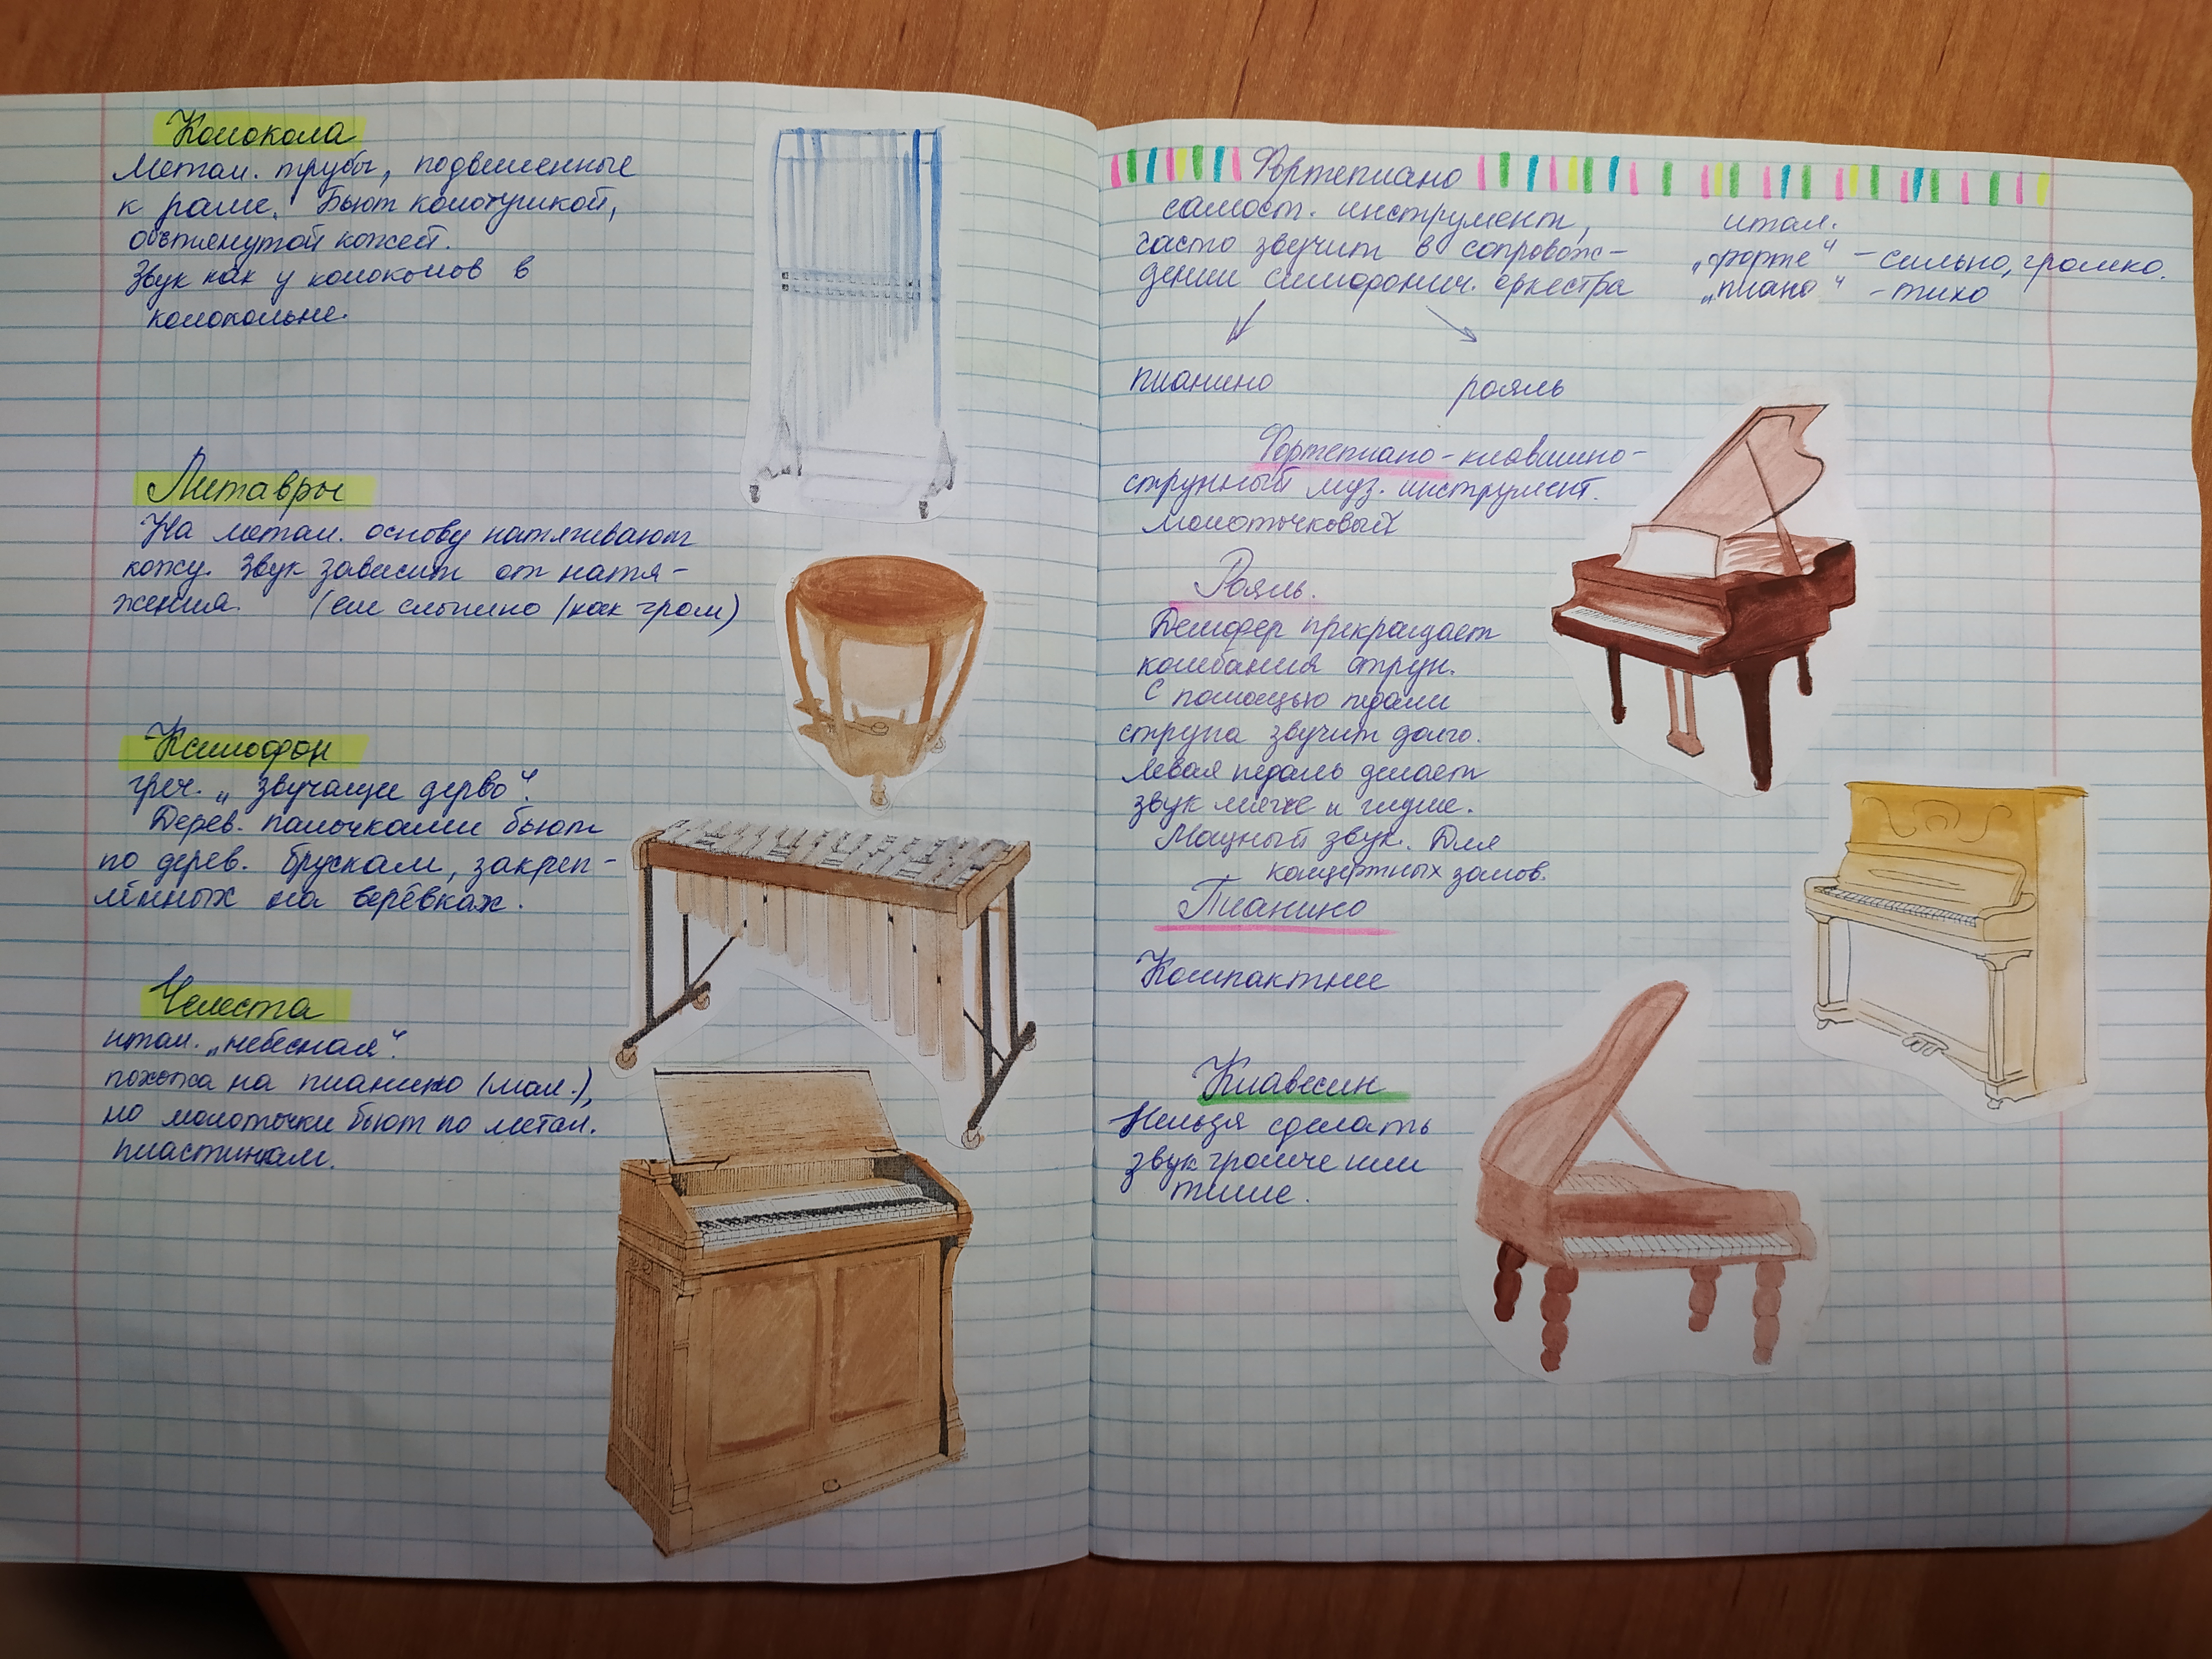 Колокола
Метал. трубы, подвешенные
к раме. Бьют колотушкой,
обтянутой кожей.
Звук как у колоколов в
колокольне.
Литавры
На метал. основу натягивают
кожу. Звук зависит от натя-
жения. (ей слышно /как гром)
Ксилофон
греч. „звучащее дерево“.
Дерев. палочками бьют
по дерев. брускам, закреп-
лённых на верёвках.
Челеста
итал. „небесная“.
похожа на пианино (мал.),
но молоточки бьют по метал.
пластинкам.
Фортепиано
самост. инструмент,
часто звучит в сопровож-
дении симфонич. оркестра
итал.
„форте“ - сильно, громко.
„пиано“ - тихо
пианино рояль
Фортепиано - клавишно-
струнный муз. инструмент.
молоточковый
Рояль.
Демфер прекращает
колебания струн.
С помощью педали
струна звучит долго.
Левая педаль делает
звук мягче и глуше.
Мощный звук. Для
концертных залов.
Пианино
Компактнее
Клавесин
Нельзя сделать
звук громче или
тише.